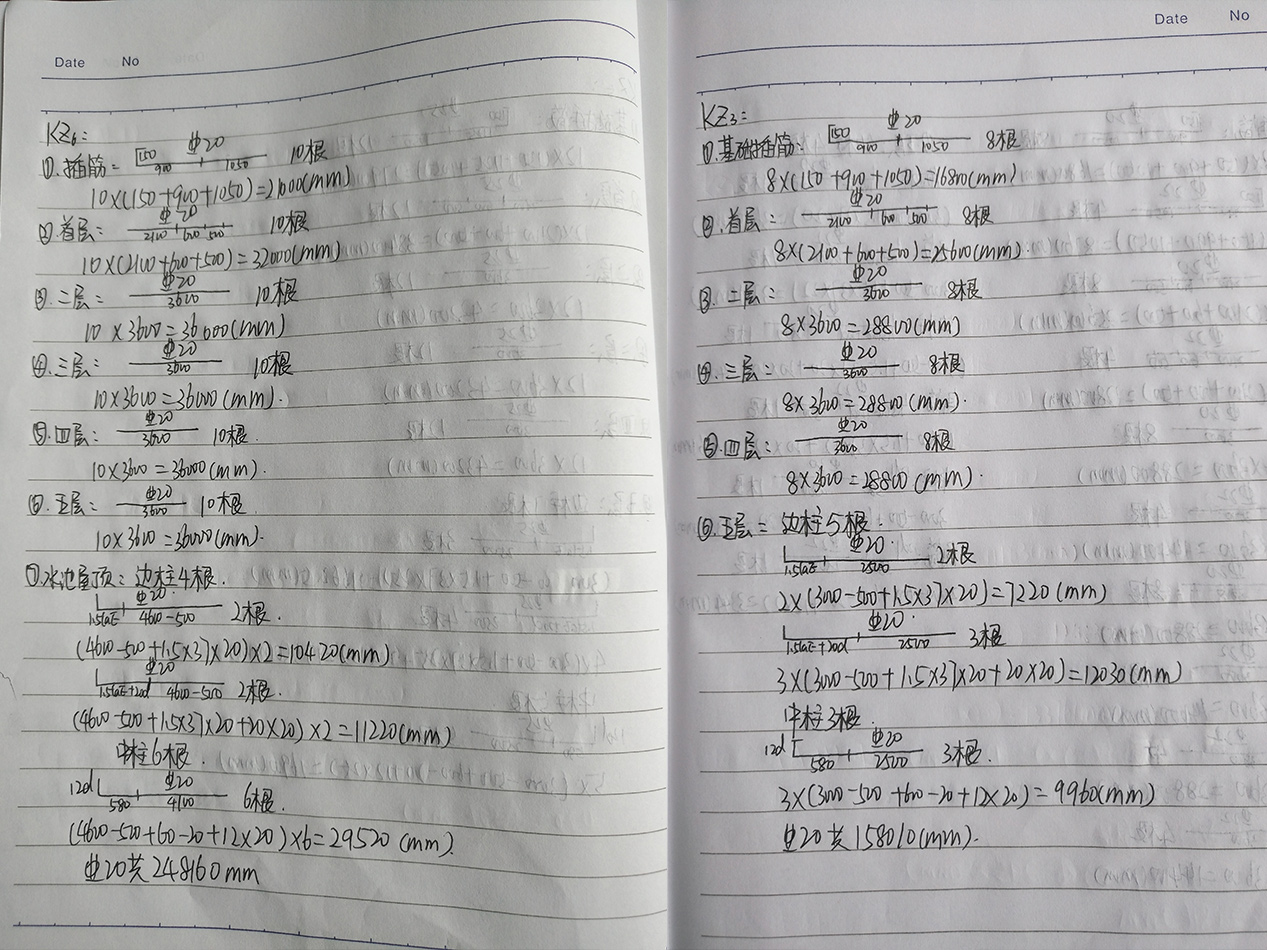 Date No
KZ6:
①.插筋= 150 900 1050 ⌀20 10根
10×(150+900+1050)=21000(mm)
②.首层: ⌀20 2100 600 500 10根
10×(2100+600+500)=32000(mm)
③.二层: ⌀20 3600 10根
10×3600=36000(mm)
④.三层: ⌀20 3600 10根
10×3600=36000(mm).
⑤.四层: ⌀20 3600 10根.
10×3600=36000(mm).
⑥.五层: ⌀20 3600 10根
10×3600=36000(mm).
⑦.水池屋顶: 边柱4根.
1.5laE ⌀20 4600-500 2根.
(4600-500+1.5×37×20)×2=10420(mm)
1.5laE+20d ⌀20 4600-500 2根.
(4600-500+1.5×37×20+20×20)×2=11220(mm)
中柱6根.
12d 580 ⌀20 4100 6根.
(4600-500+60-20+12×20)×6=29520(mm).
⌀20共248160mm
Date No
KZ3:
①.基础插筋: 150 900 1050 ⌀20 8根
8×(150+900+1050)=16800(mm)
②.首层: ⌀20 2100 600 500 8根
8×(2100+600+500)=25600(mm).
③.二层: ⌀20 3600 8根
8×3600=28800(mm)
④.三层= ⌀20 3600 8根
8×3600=28800(mm).
⑤.四层: ⌀20 3600 8根
8×3600=28800(mm).
⑥.五层= 边柱5根.
1.5laE ⌀20 2500 2根
2×(3000-500+1.5×37×20)=7220(mm)
1.5laE+20d ⌀20 2500 3根
3×(3000-500+1.5×37×20+20×20)=12030(mm)
中柱3根.
12d 580 ⌀20 2500 3根.
3×(3000-500+600-20+12×20)=9960(mm)
⌀20共158010(mm).